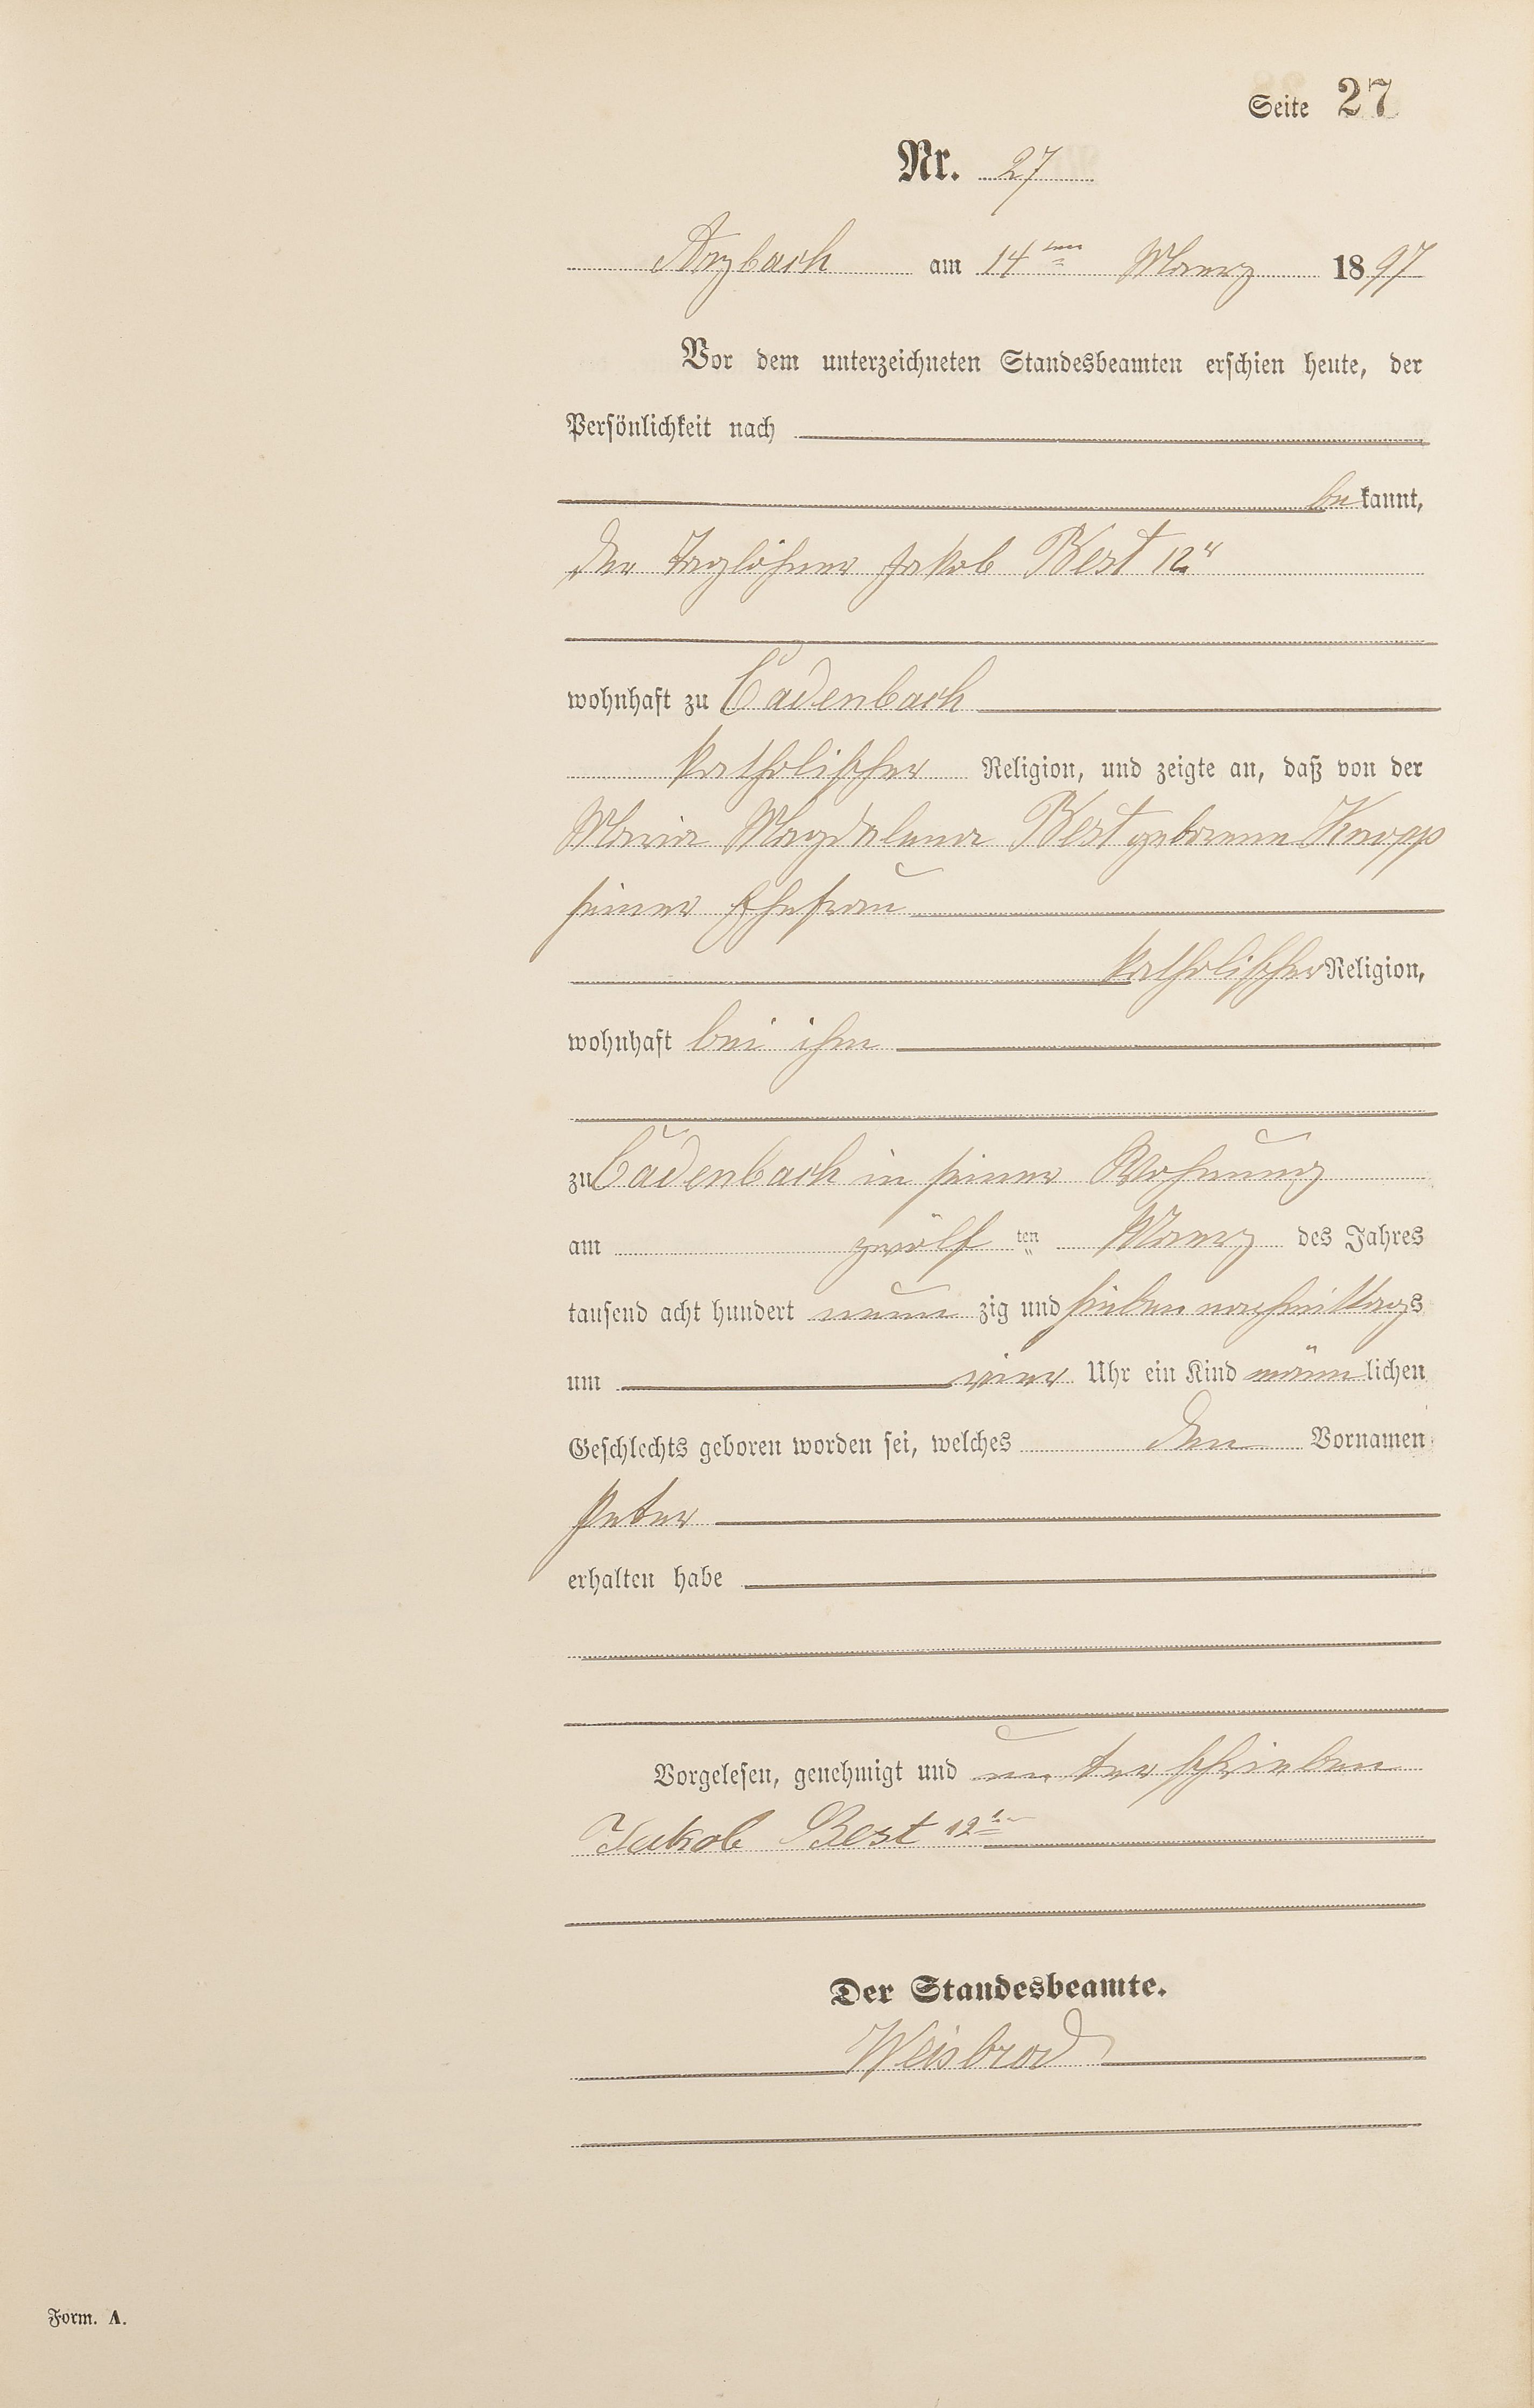 Seite 27
Nr. 27
Arzbach am 14ten Maerz 1897
Vor dem unterzeichneten Standesbeamten erschien heute, der
Persönlichkeit nach
bekannt,
der Taglöhner Jakob Best 12r
wohnhaft zu Cadenbach
katholischer Religion, und zeigte an, daß von der
Maria Magdalena Best geborene Knopp
seiner Ehefrau
katholischer Religion,
wohnhaft bei ihm
zu Cadenbach in seiner Wohnung
am zwölf ten Maerz des Jahres
tausend acht hundert neun zig und sieben nachmittags
um vier Uhr ein Kind männlichen
Geschlechts geboren worden sei, welches den Vornamen
Peter
erhalten habe
Vorgelesen, genehmigt und unterschrieben
Jakob Best 12ter
Der Standesbeamte.
Weisbrod
Form. A.